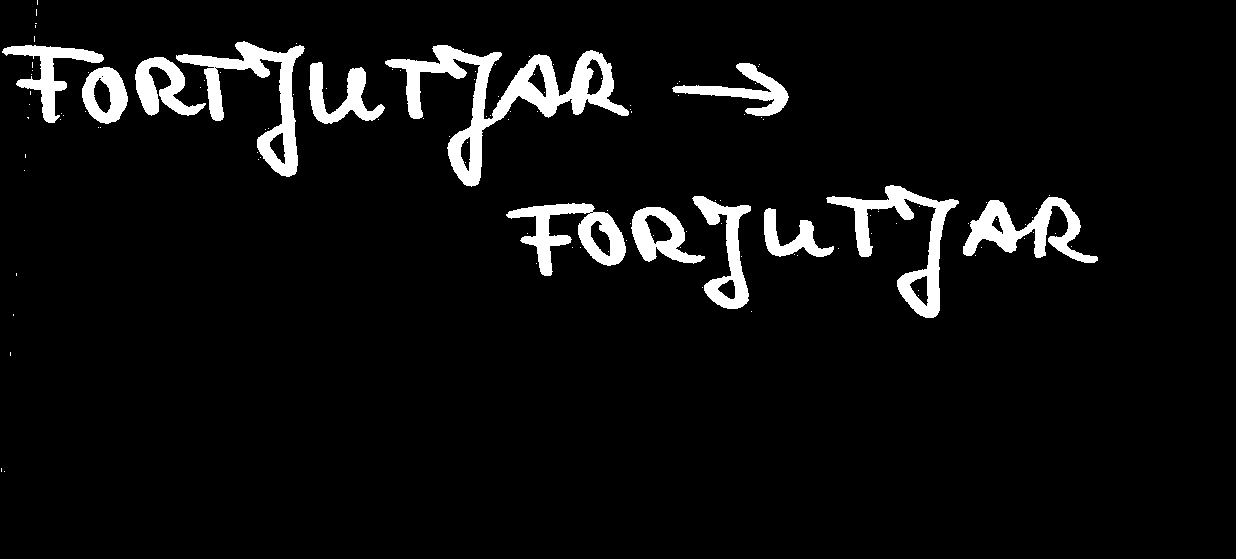 FORTJUTJAR →
FORJUTJAR